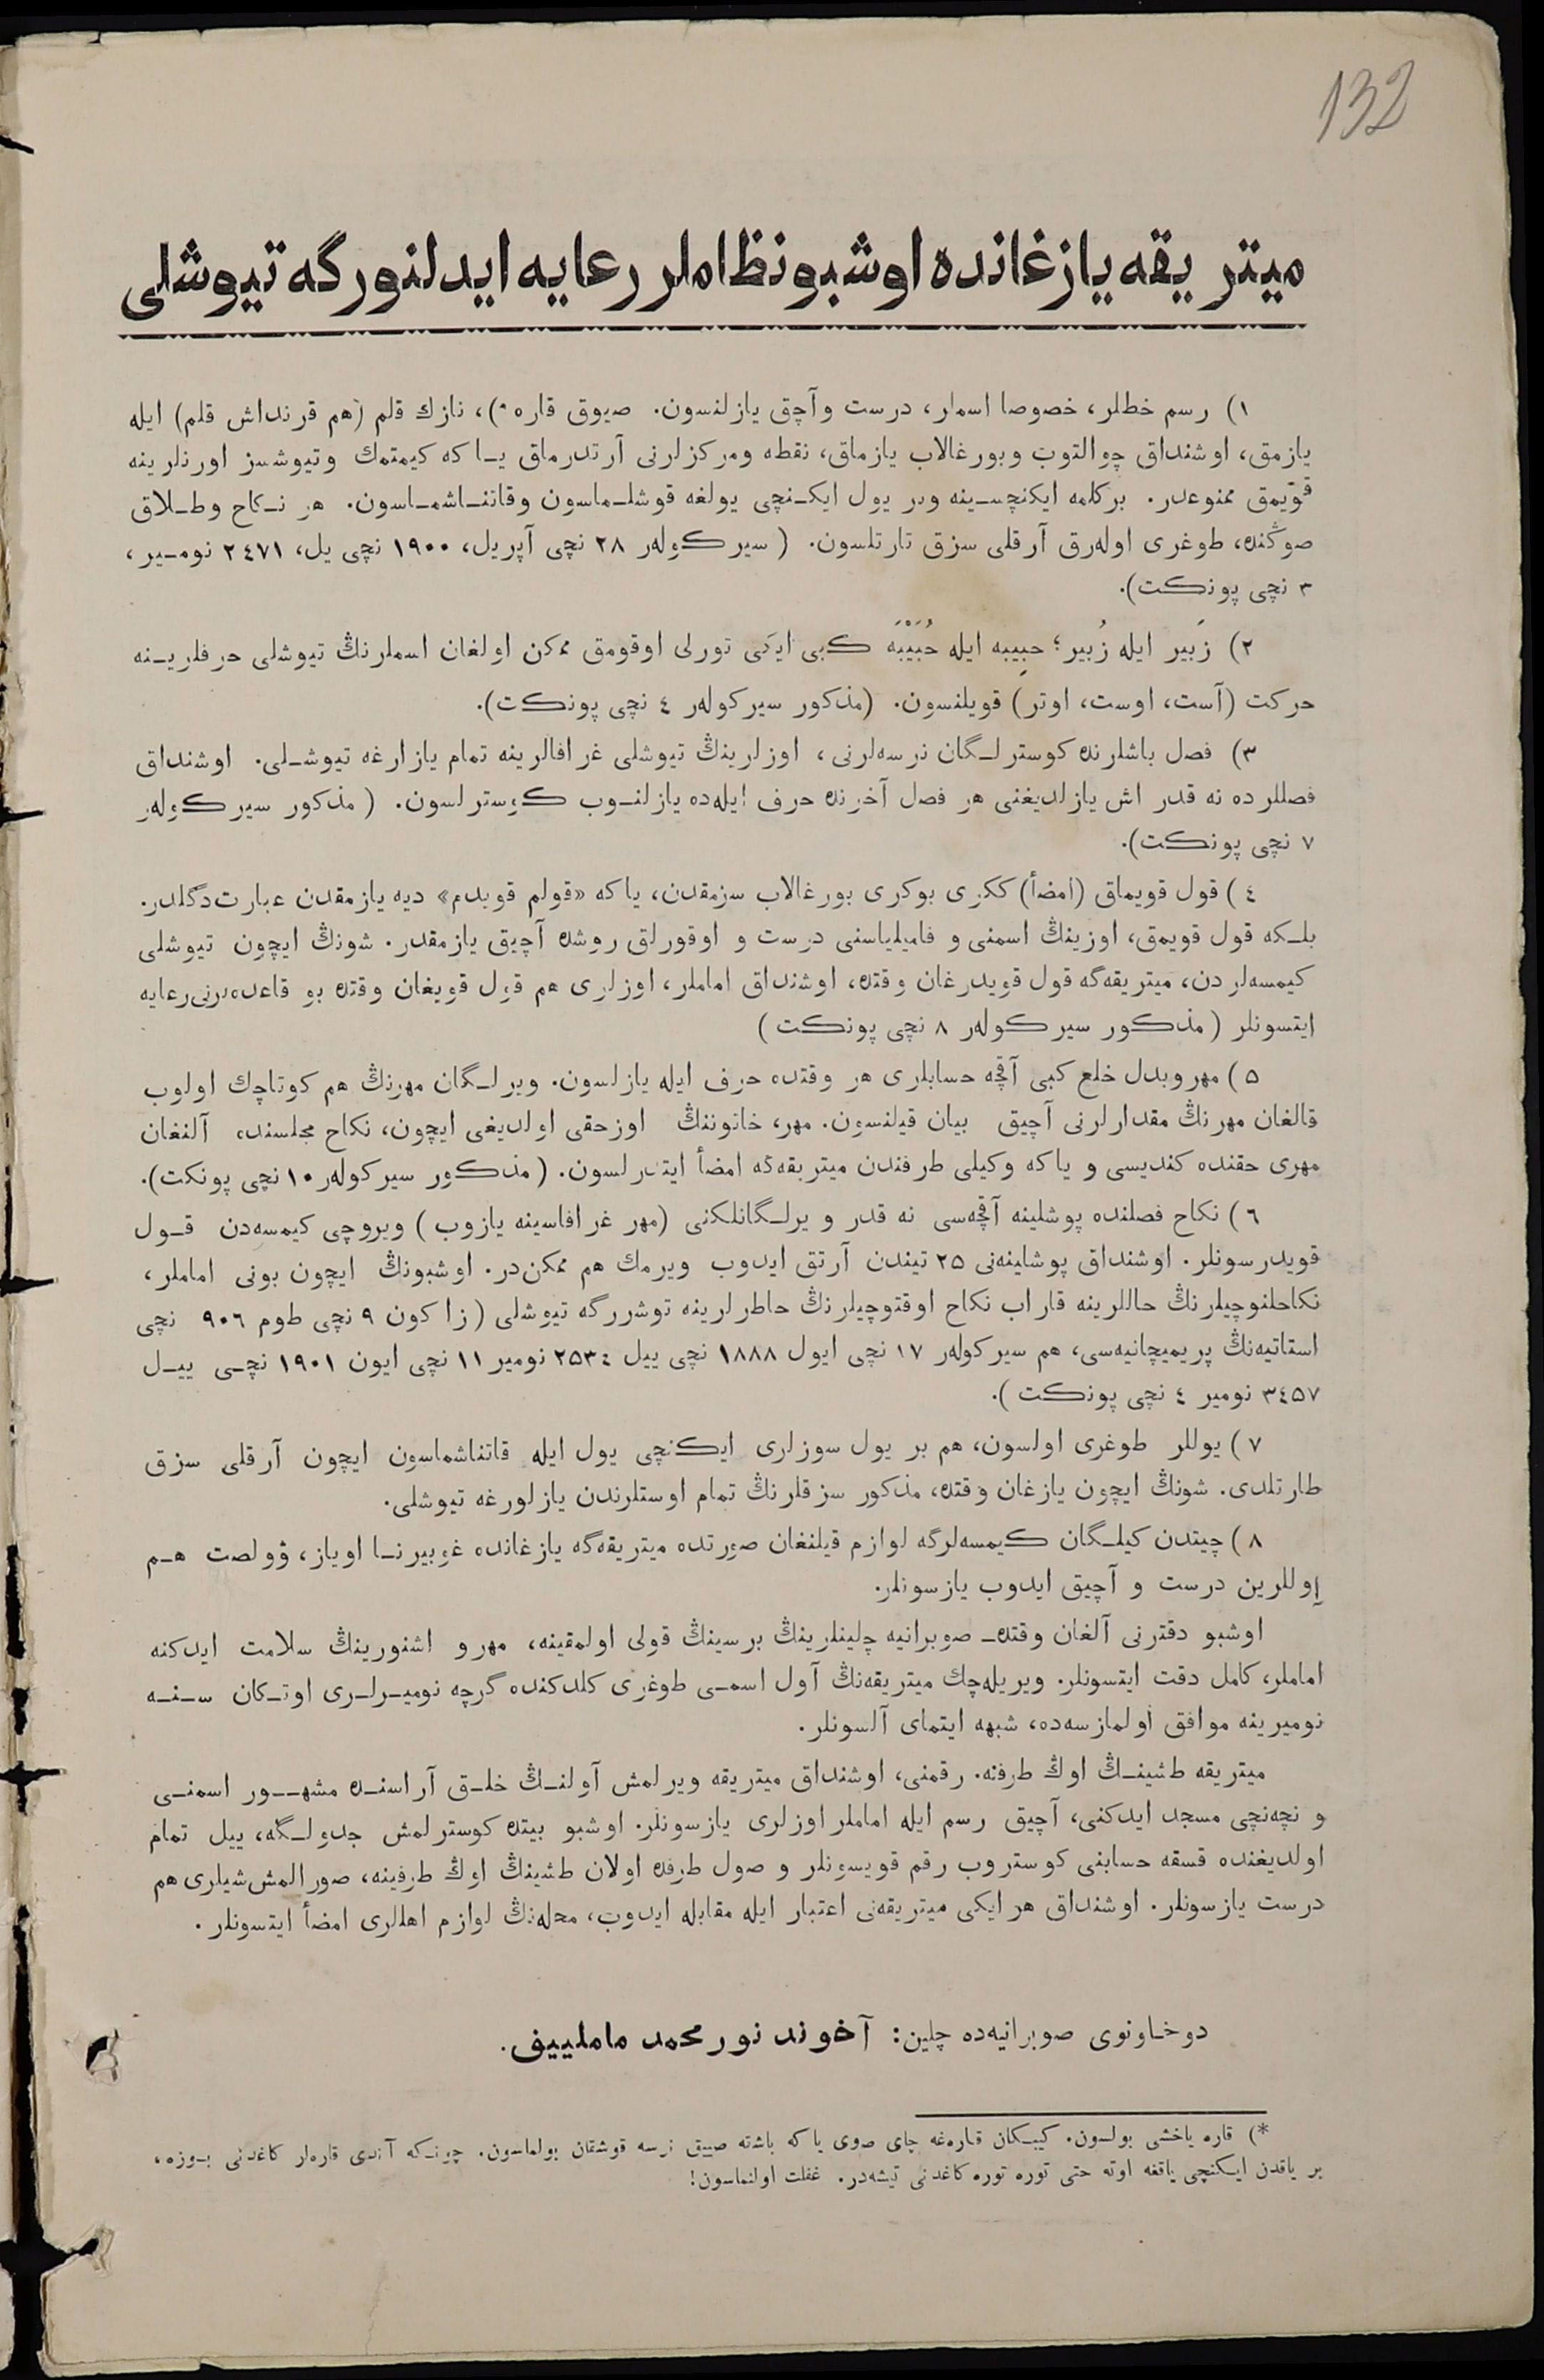 132
ميتريقه يازغانده اوشبو نظاملر رعايه ايدلنورگه تيوشلى
١) رسم خطلر، خصوصا اسملر، درست و آچق يازلنسون. صيوق قاره *)، نازك قلم (هم قرنداش قلم) ايله
يازمق، اوشنداق چوالتوب و بورغالاب يازماق، نقطه ومركزلرنى آرتدرماق يـا كه كيمتمك وتيوشسز اورنلرينه
قويمق ممنوعدر. بر كلمه ايكنچسـينه وبر يول ايكـنچى يولغه قوشلـماسون وقاتنـاشمـاسون. هر نـكاح وطـلاق
صوڭنده، طوغرى اوله‌رق آرقلى سزق تارتلسون. (سيركولهر ٢٨ نچى آپريل، ١٩٠٠ نچى يل، ٢٤٧١ نومـير،
٣ نچى پونكت).
٢) زَبير ايله زُبير؛ حبِيبه ايله حُبَيْبَه كبى ايكى تورلى اوقومق ممكن اولغان اسملرنڭ تيوشلى حرفلريـنه
حركت (آست، اوست، اوتر) قويلنسون. (مذكور سيركولهر ٤ نچى پونكت).
٣) فصل باشلرنده كوسترلـگان نرسه‌لرنى، اوزلرينڭ تيوشلى غرافالرينه تمام يازارغه تيوشـلى. اوشنداق
فصللرده نه قدر اش يازلديغنى هر فصل آخرنده حرف ايله‌ده يازلنـوب كوسترلسون. (مذكور سيركولهر
٧ نچى پونكت).
٤) قول قويماق (امضأ) ككرى بوكرى بورغالاب سزمقدن، ياكه «قولم قويدم» ديه يازمقدن عبارت دگلدر.
بلـكه قول قويمق، اوزينڭ اسمنى و فاميلياسنى درست و اوقورلق روشده آچيق يازمقدر. شونڭ ايچون تيوشلى
كيمسه‌لردن، ميتريقه‌گه قول قويدرغان وقتده، اوشنداق اماملر، اوزلرى هم قول قويغان وقتده بو قاعده‌لرنى رعايه
ايتسونلر (مذكور سيركولهر ٨ نچى پونكت)
٥) مهر وبدل خلع كبى آقچه حسابلرى هر وقتده حرف ايله يازلسون. ويرلـگان مهرنڭ هم كوتاچك اولوب
قالغان مهرنڭ مقدارلرنى آچيق بيان قيلنسون. مهر، خاتوننڭ اوز حقى اولديغى ايچون، نكاح مجلسنده آلنغان
مهرى حقنده كنديسى و ياكه وكيلى طرفندن ميتريقه‌گه امضأ ايتدرلسون. (مذكور سيركولهر ١٠ نچى پونكت).
٦) نكاح فصلنده پوشلينه آقچه‌سى نه قدر ويرلـگانلكنى (مهر غرافاسينه يازوب) ويروچى كيمسه‌دن قـول
قويدرسونلر. اوشنداق پوشلينه‌نى ٢٥ تيندن آرتق ايدوب ويرمك هم ممكن‌در. اوشبونڭ ايچون بونى اماملر،
نكاحلنوچيلرنڭ حاللرينه قاراب نكاح اوقتوچيلرنڭ خاطرلرينه توشررگه تيوشلى (زاكون ٩ نچى طوم ٩٠٦ نچى
استاتيه‌نڭ پريميچانيه‌سى، هم سيركولهر ١٧ نچى ايول ١٨٨٨ نچى ييل ٢٥٣٤ نومير ١١ نچى ايون ١٩٠١ نچـى ييـل
٣٤٥٧ نومير ٤ نچى پونكت).
٧) يوللر طوغرى اولسون، هم بر يول سوزلرى ايكنچى يول ايله قاتناشماسون ايچون آرقلى سزق
طارتلدى. شونڭ ايچون يازغان وقتده، مذكور سزقلرنڭ تمام اوستلرندن يازلورغه تيوشلى.
٨) چيتدن كيلـگان كيمسه‌لرگه لوازم قيلنغان صورتده ميتريقه‌گه يازغانده غوبيرنـا اوياز، ۋولصت هـم
اوللرين درست و آچيق ايدوب يازسونلر.
اوشبو دفترنى آلغان وقتده صوبرانيه چلينلرينڭ برسينڭ قولى اولمقينه، مهر و اشنورينڭ سلامت ايدكنه
اماملر، كامل دقت ايتسونلر. ويريله‌چك ميتريقه‌نڭ آول اسمـى طوغرى كلدكنده گرچه نوميـرلـرى اوتـكان سـنـه
نوميرينه موافق اولمازسه‌ده، شبهه ايتماى آلسونلر.
ميتريقه طشينـڭ اوڭ طرفنه رقمنى، اوشنداق ميتريقه ويرلمش آولنـڭ خلـق آراسنـده مشهــور اسمنـى
و نچه‌نچى مسجد ايدكنى، آچيق رسم ايله اماملر اوزلرى يازسونلر. اوشبو بيتده كوسترلمش جدولـگه، ييل تمام
اولديغنده قسقه حسابنى كوستروب رقم قويسونلر و صول طرفده اولان طشينڭ اوڭ طرفينه، صورالمش شيلرى هم
درست يازسونلر. اوشنداق هر ايكى ميتريقه‌نى اعتبار ايله مقابله ايدوب، محله‌نڭ لوازم اهللرى امضأ ايتسونلر.
دوخاونوى صوبرانيه‌ده چلين: آخوند نور محمد ماملييف.
*) قاره ياخشى بولسون. كيبـكان قاره‌غه چاى صوى ياكه باشقه صيق نرسه قوشقان بولماسون. چونـكه آندى قاره‌لر كاغدنى بـوزه،
بر ياقدن ايـكنچى ياقغه اوته حتى توره توره كاغدنى تيشه‌در. غفلت اولنماسون!